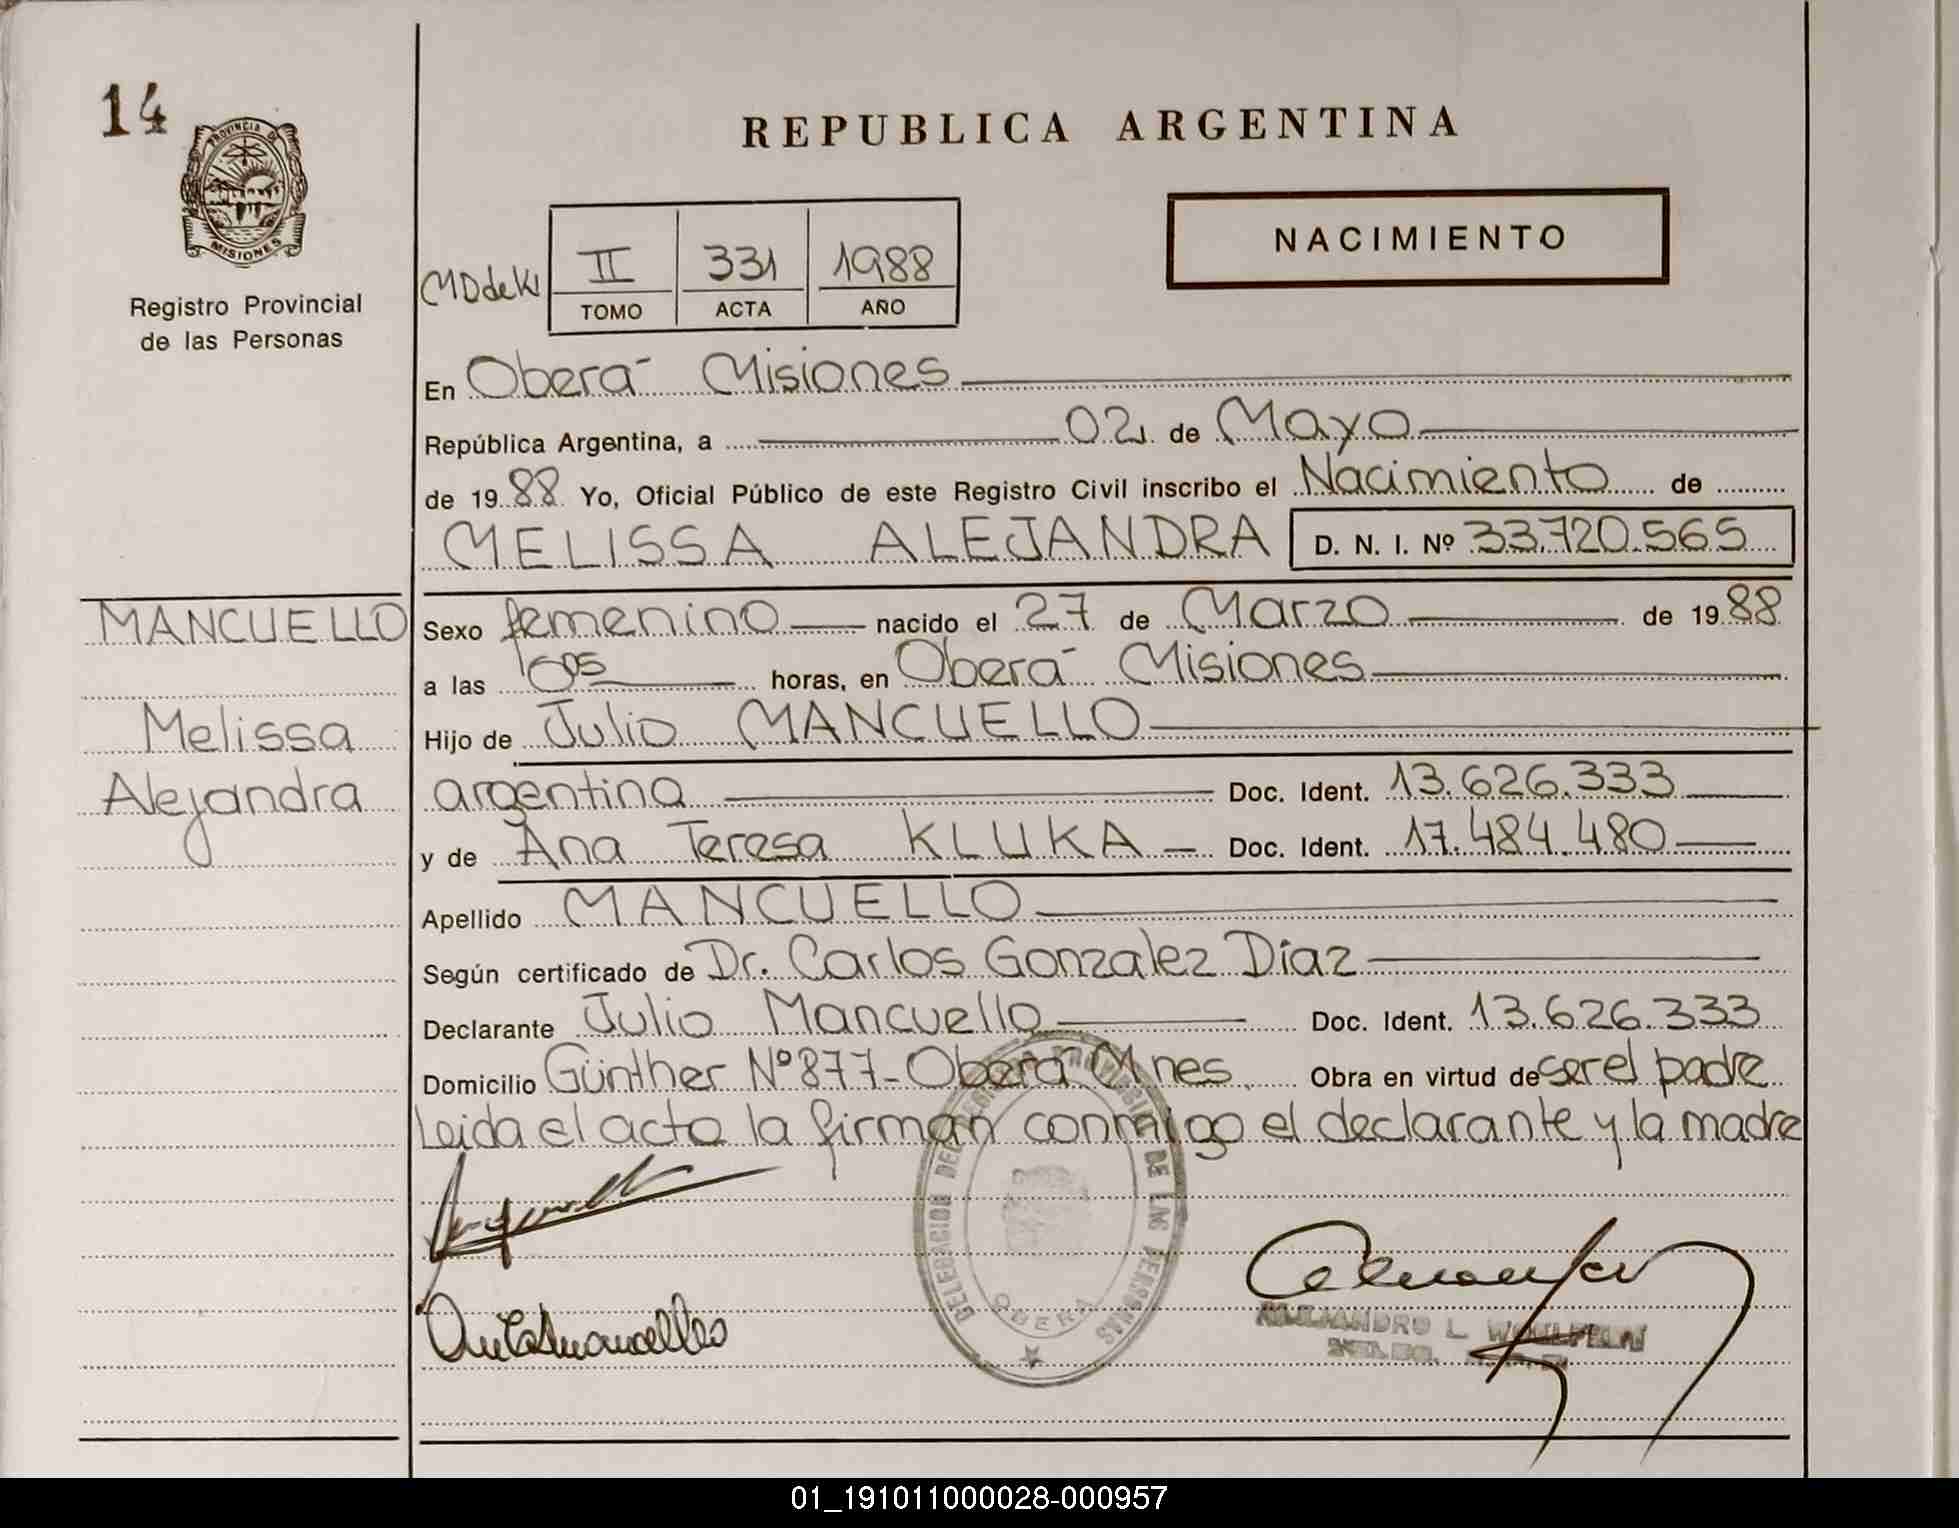 14
PROVINCIA DE
MISIONES
Registro Provincial
de las Personas
REPUBLICA ARGENTINA
NACIMIENTO
II 331 1988
TOMO ACTA AÑO
En Oberá Misiones
República Argentina, a 02 de Mayo
de 1988 Yo, Oficial Público de este Registro Civil inscribo el Nacimiento de
MELISSA ALEJANDRA D. N. I. Nº 33.720.565
MANCUELLO
Melissa
Alejandra
Sexo femenino nacido el 27 de Marzo de 1988
a las horas, en Oberá Misiones
Hijo de Julio MANCUELLO
argentina Doc. Ident. 13.626.333
y de Ana Teresa KLUKA Doc. Ident. 17.484.480
Apellido MANCUELLO
Según certificado de Dr. Carlos Gonzalez Díaz
Declarante Julio Mancuello Doc. Ident. 13.626.333
Domicilio Günther Nº 877 - Oberá Mnes Obra en virtud de ser el padre
Leida el acta la firman conmigo el declarante y la madre
DELEGACION DE LAS PERSONAS
OBERA
ALEJANDRO L.
01_191011000028-000957